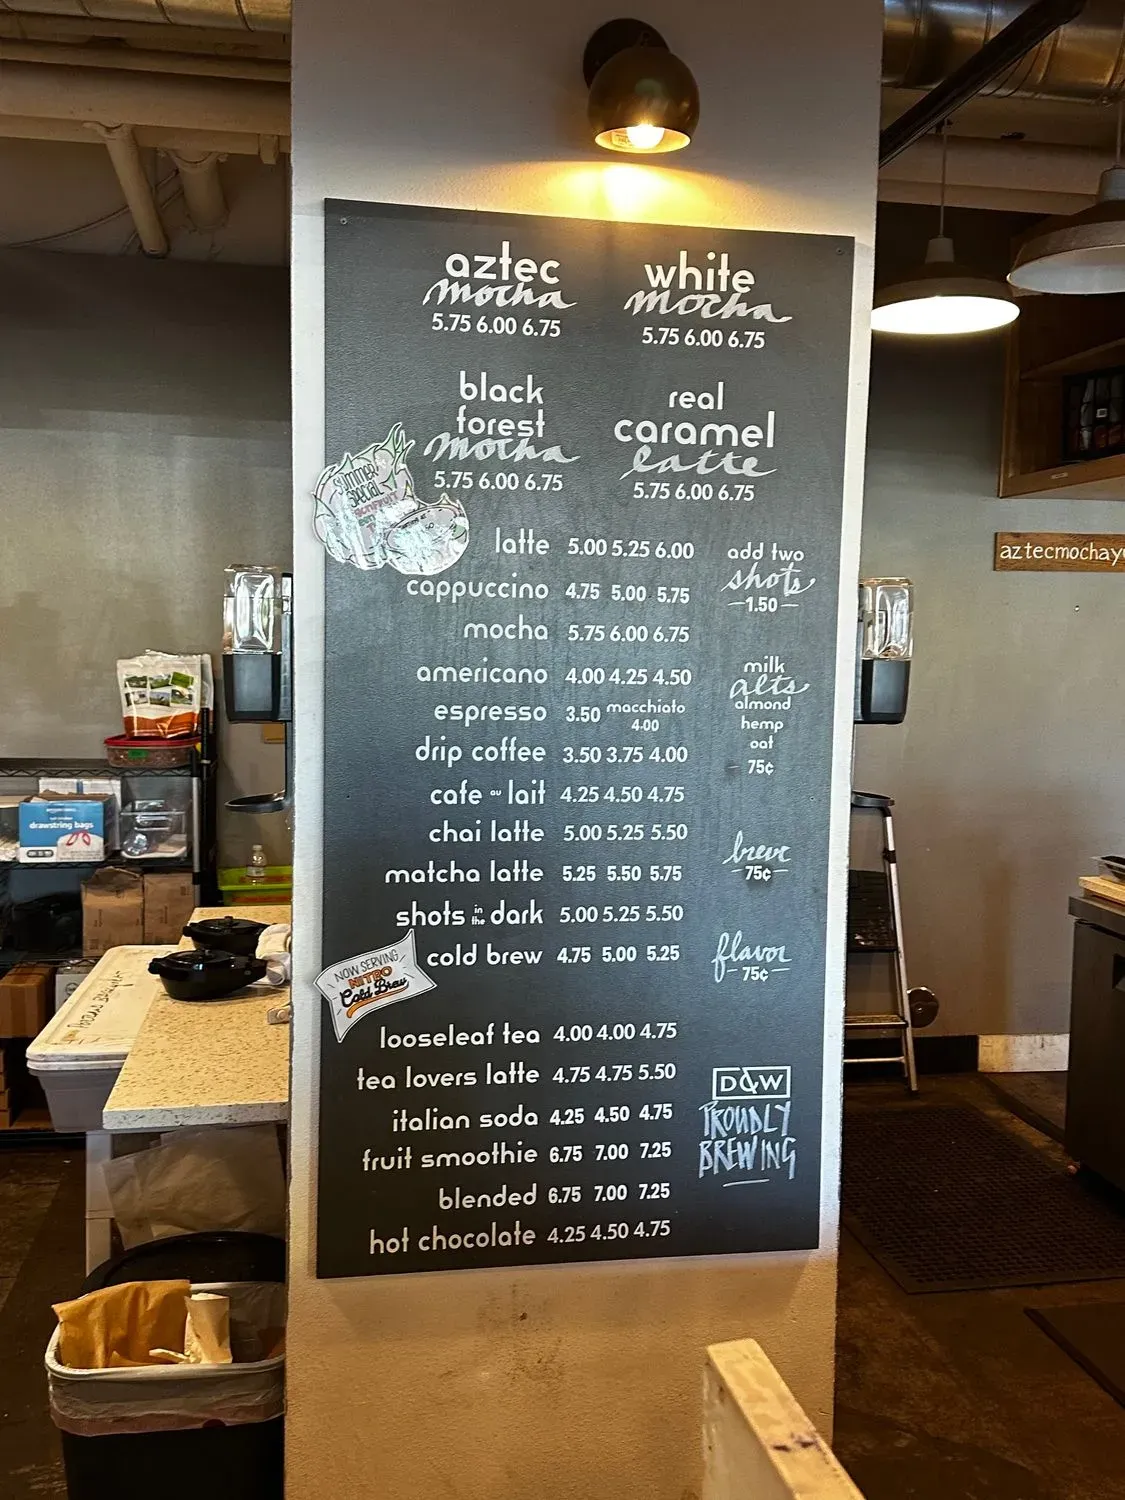 aztec
mocha
5.75 6.00 6.75
white
mocha
5.75 6.00 6.75
black
forest
mocha
5.75 6.00 6.75
real
caramel
latte
5.75 6.00 6.75
Summer
Special
latte 5.00 5.25 6.00
cappuccino 4.75 5.00 5.75
mocha 5.75 6.00 6.75
americano 4.00 4.25 4.50
espresso 3.50 macchiato
4.00
drip coffee 3.50 3.75 4.00
cafe au lait 4.25 4.50 4.75
chai latte 5.00 5.25 5.50
matcha latte 5.25 5.50 5.75
shots in the dark 5.00 5.25 5.50
cold brew 4.75 5.00 5.25
NOW SERVING
NITRO
Cold Brew
looseleaf tea 4.00 4.00 4.75
tea lovers latte 4.75 4.75 5.50
italian soda 4.25 4.50 4.75
fruit smoothie 6.75 7.00 7.25
blended 6.75 7.00 7.25
hot chocolate 4.25 4.50 4.75
add two
shots
-1.50-
milk
alts
almond
hemp
oat
- 75¢
breve
- 75¢ -
flavor
- 75¢ -
D&W
PROUDLY
BREWING
aztecmochayu
drawstring bags